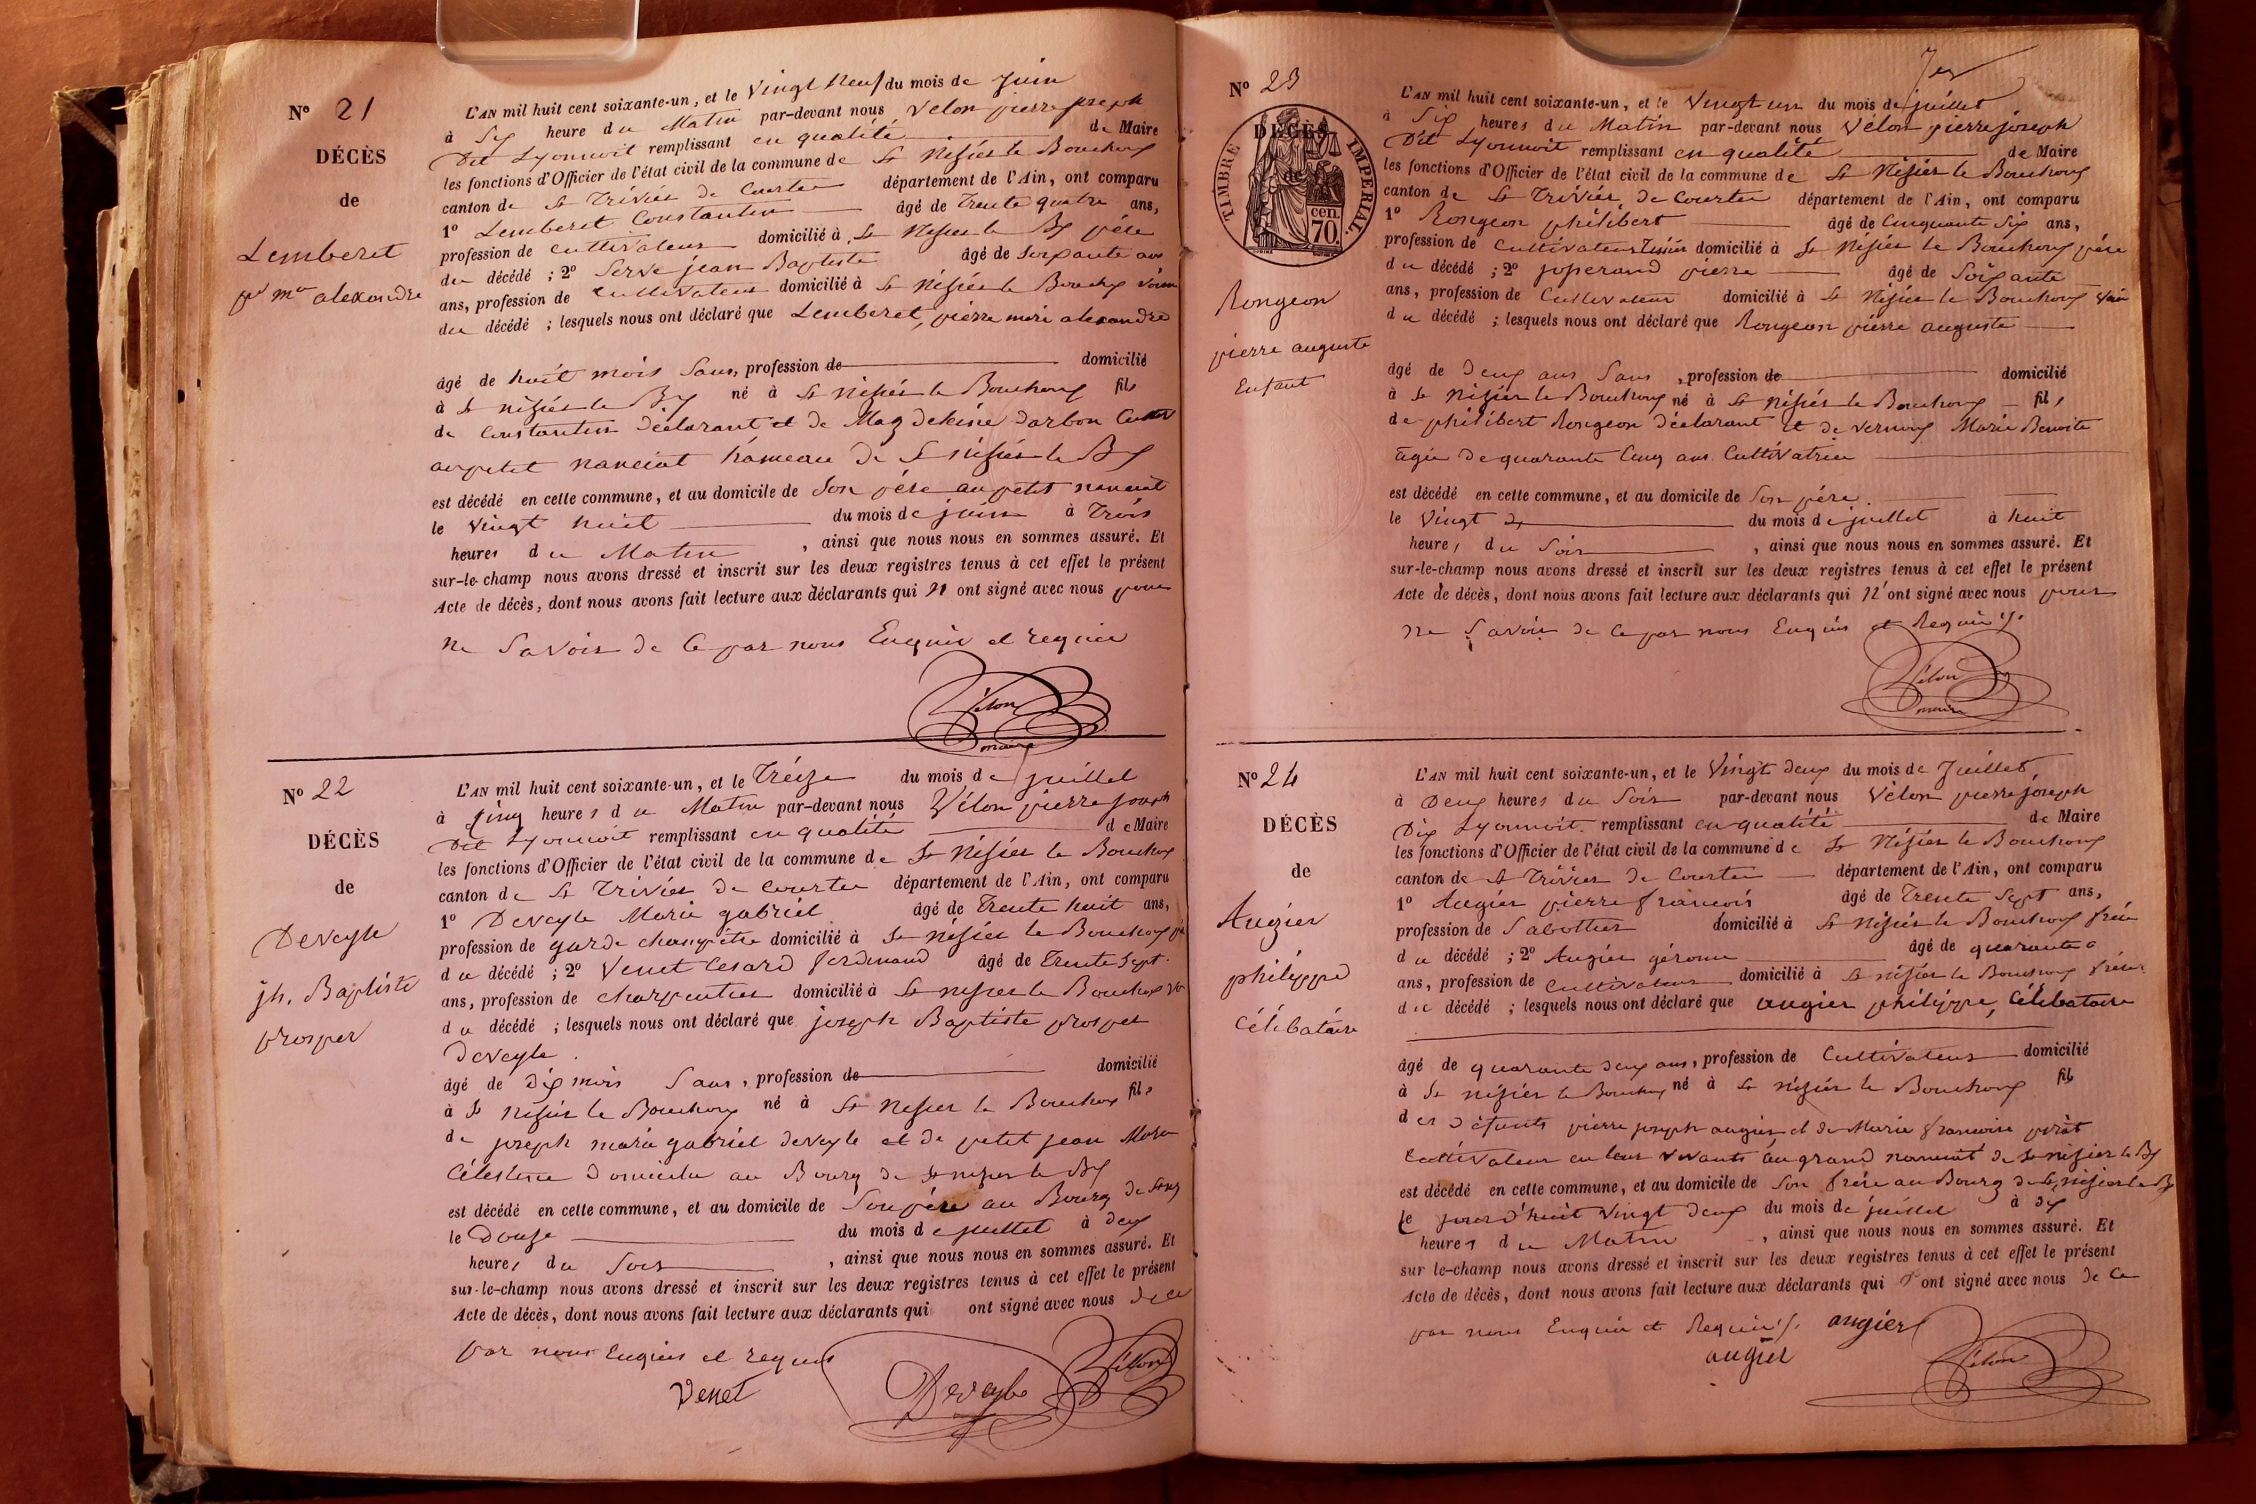 Nº 21
DÉCÈS
de
Lemberet
pre mie alexandre
L'AN mil huit cent soixante-un, et le Vingt Neuf du mois de Juin
à Six heure du Matin par-devant nous Vélon pierre joseph
Dit Lyonnoit remplissant en qualité de Maire
les fonctions d'Officier de l'état civil de la commune de St Nisier le Bouchoux
canton de St Trivier de Courtes département de l'Ain, ont comparu
1º Lemberet Constantin âgé de Trente quatre ans,
profession de cultivateur domicilié à St Nisier le Bx père
du décédé ; 2º Serve jean Baptiste âgé de soixante
ans, profession de Cultivateur domicilié à St Nisier le Bouchoux voisin
du décédé ; lesquels nous ont déclaré que Lemberet, pierre alexandre
âgé de huit mois Sans, profession de domicilié
à St nisier le Bx né à St nisier le Bouchoux fils
de Constantin déclarant et de Magdeleine darbon
au petit nanciat hameau de St nisier le Bx
est décédé en cette commune, et au domicile de Son père au petit nanciat
le Vingt huit du mois de juin à Trois
heures du Matin, ainsi que nous nous en sommes assuré. Et
sur-le-champ nous avons dressé et inscrit sur les deux registres tenus à cet effet le présent
Acte de décès, dont nous avons fait lecture aux déclarants qui n'ont signé avec nous pour
ne Savoir de ce par nous Enquis et requis
Vélon
maire
Nº 22
DÉCÈS
de
Deveyle
jh. Baptiste
prosper
L'AN mil huit cent soixante-un, et le Treize du mois de juillet
à Cinq heures du Matin par-devant nous Vélon pierre joseph
Dit Lyonnoit remplissant en qualité de Maire
les fonctions d'Officier de l'état civil de la commune de St Nisier le Bouchoux
canton de St Trivier de Courtes département de l'Ain, ont comparu
1º Deveyle Marie gabriel âgé de Trente huit ans,
profession de garde champêtre domicilié à St nisier le Bouchoux
du décédé ; 2º Venet Césard ferdinand âgé de Trente Sept
ans, profession de charpentier domicilié à St nisier le Bouchoux
du décédé ; lesquels nous ont déclaré que joseph Baptiste prosper
Deveyle.
âgé de dix mois Sans, profession de domicilié
à St nisier le Bouchoux né à St nisier le Bouchoux fils
de joseph marie gabriel deveyle et de petit jean Marie
Célestine Domicilié au Bourg de St nisier le Bx
est décédé en cette commune, et au domicile de Son père au Bourg de
le Douze du mois de juillet à deux
heures du Soir, ainsi que nous nous en sommes assuré. Et
sur-le-champ nous avons dressé et inscrit sur les deux registres tenus à cet effet le présent
Acte de décès, dont nous avons fait lecture aux déclarants qui ont signé avec nous de ce
par nous Enquis et requis
Venet Deveyle Vélon
Nº 23
DÉCÈS
de
TIMBRE IMPÉRIAL
cen.
70.
Rongeon
pierre auguste
Enfant
L'AN mil huit cent soixante-un, et le Vingt un du mois de juillet
à Six heures du Matin par-devant nous Vélon pierre joseph
Dit Lyonnoit remplissant en qualité de Maire
les fonctions d'Officier de l'état civil de la commune de St Nisier le Bouchoux
canton de St Trivier de Courtes département de l'Ain, ont comparu
1º Rongeon philibert âgé de Cinquante Six ans,
profession de Cultivateur domicilié à St Nisier le Bouchoux père
du décédé ; 2º josserand pierre âgé de Soixante
ans, profession de Cultivateur domicilié à St Nisier le Bouchoux
du décédé ; lesquels nous ont déclaré que Rongeon pierre auguste
âgé de Deux ans Sans, profession de domicilié
à St Nisier le Bouchoux né à St Nisier le Bouchoux fils
de philibert Rongeon déclarant et de Vernoux Marie Benoite
agée de quarante Cinq ans Cultivatrice
est décédé en cette commune, et au domicile de Son père.
le Vingt du mois de juillet à huit
heures du Soir, ainsi que nous nous en sommes assuré. Et
sur-le-champ nous avons dressé et inscrit sur les deux registres tenus à cet effet le présent
Acte de décès, dont nous avons fait lecture aux déclarants qui n'ont signé avec nous pour
ne Savoir de ce par nous Enquis et Requis
Vélon
maire
Nº 24
DÉCÈS
de
Augier
philippe
Célibataire
L'AN mil huit cent soixante-un, et le Vingt deux du mois de Juillet
à Deux heures du Soir par-devant nous Vélon pierre joseph
Dix Lyonnoit remplissant en qualité de Maire
les fonctions d'Officier de l'état civil de la commune de St Nisier le Bouchoux
canton de St Trivier de Courtes département de l'Ain, ont comparu
1º Augier pierre francois âgé de Trente Sept ans,
profession de Sabottier domicilié à St Nisier le Bouchoux frère
du décédé ; 2º Augier gérome âgé de quarante
ans, profession de Cultivateur domicilié à St nisier le Bouchoux frère
du décédé ; lesquels nous ont déclaré que augier philippe, Célibataire
âgé de quarante deux ans, profession de Cultivateur domicilié
à St nisier le Bouchoux né à St nisier le Bouchoux fils
des défunts pierre joseph augier et de Marie francoise
Cultivateur en leur vivants au grand nanciat de St nisier le Bx
est décédé en cette commune, et au domicile de Son frère au Bourg de St nisier le Bx
le jourd'huit Vingt deux du mois de juillet à dix
heures du Matin, ainsi que nous nous en sommes assuré. Et
sur le-champ nous avons dressé et inscrit sur les deux registres tenus à cet effet le présent
Acte de décès, dont nous avons fait lecture aux déclarants qui ont signé avec nous de ce
par nous Enquis et Requis. augier
augier Vélon